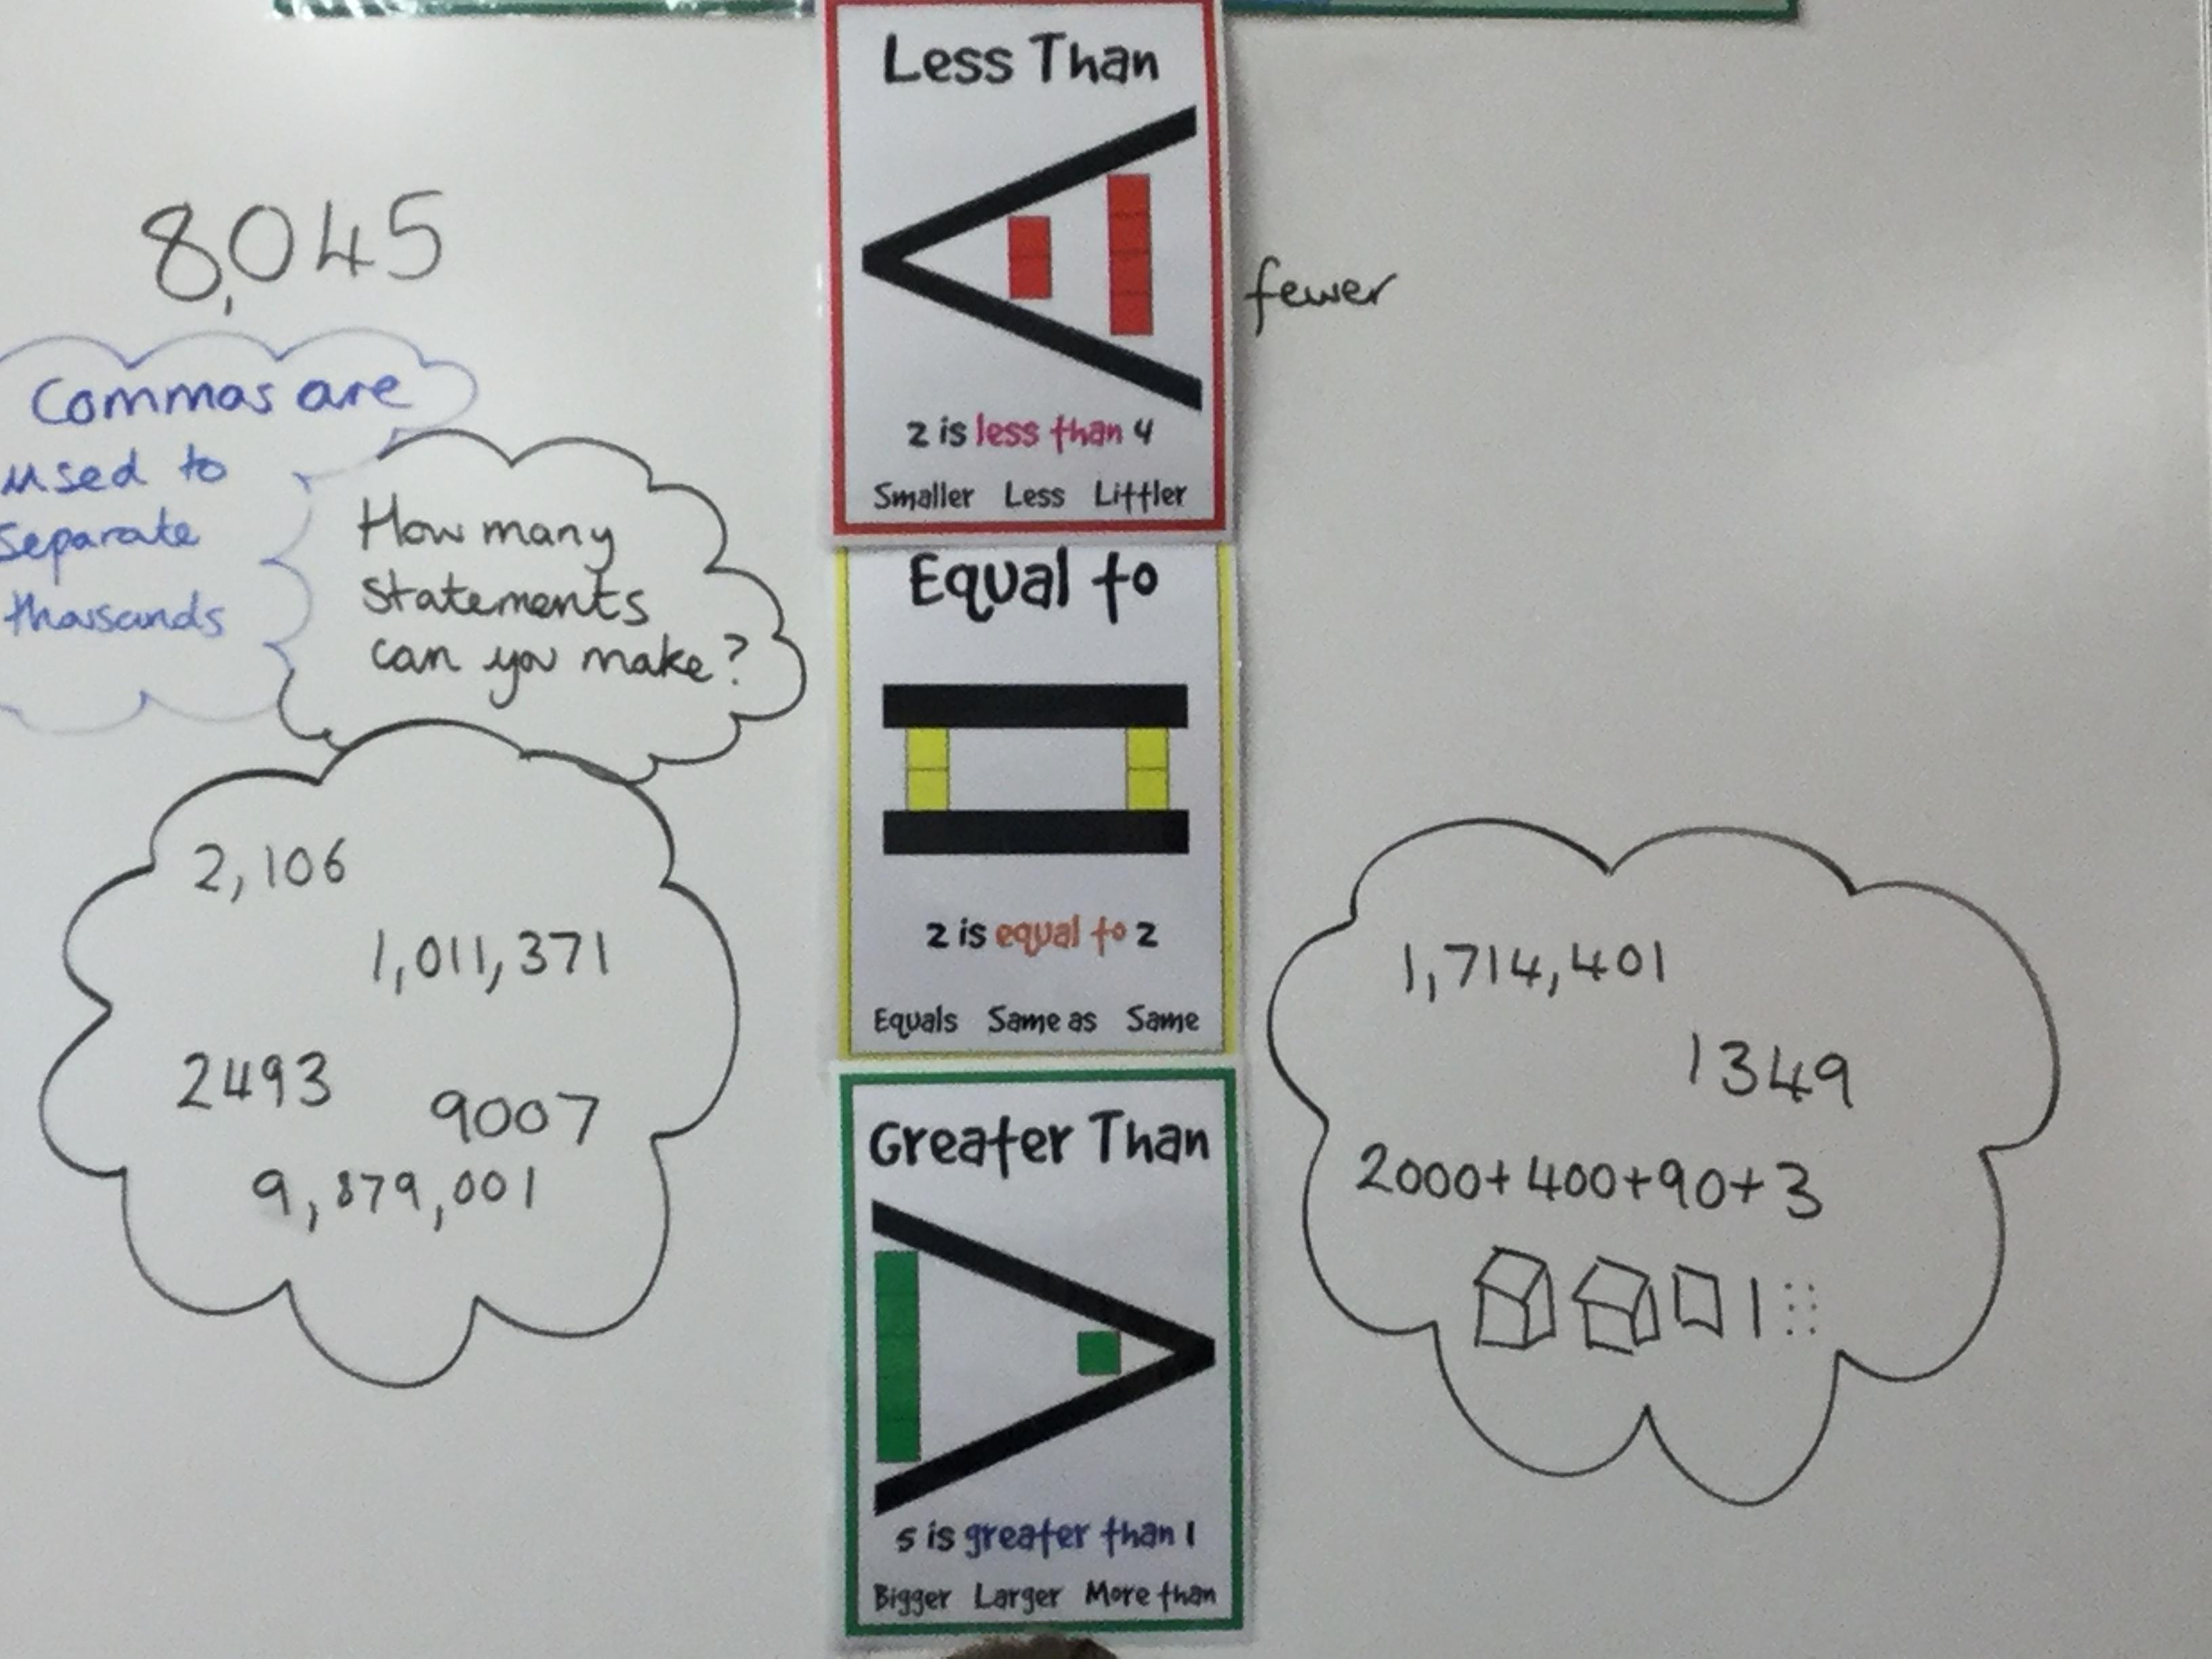 8,045
Commas are
used to
separate
thousands
How many
statements
can you make?
2,106
1,011,371
2493
9007
9,879,001
Less Than
2 is less than 4
Smaller Less Littler
fewer
Equal to
2 is equal to 2
Equals Same as Same
Greater Than
5 is greater than 1
Bigger Larger More than
1,714,401
1349
2000+400+90+3